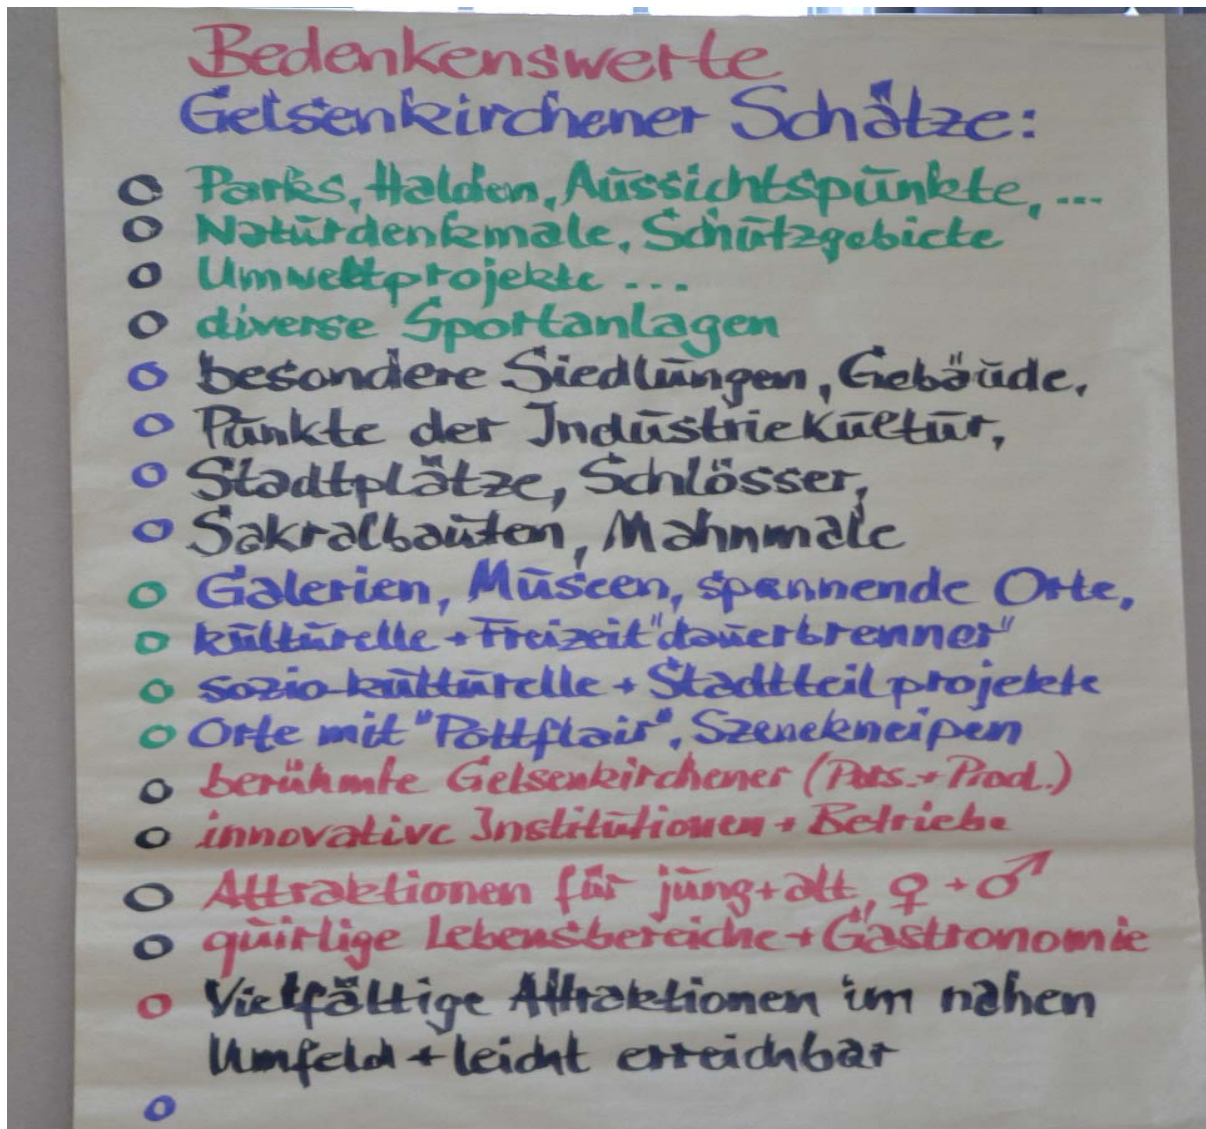 Bedenkenswerte
Gelsenkirchener Schätze:
Parks, Halden, Aussichtspunkte, ...
Naturdenkmale, Schutzgebiete
Umweltprojekte ...
diverse Sportanlagen
besondere Siedlungen, Gebäude,
Punkte der Industriekultur,
Stadtplätze, Schlösser,
Sakralbauten, Mahnmale
Galerien, Museen, spannende Orte,
kulturelle + Freizeit"dauerbrenner"
sozio-kulturelle + Stadtteilprojekte
Orte mit "Pottflair", Szenekneipen
berühmte Gelsenkirchener (Pers. + Prod.)
innovative Institutionen + Betriebe
Attraktionen für jung + alt, ♀ + ♂
quirlige Lebensbereiche + Gastronomie
Vielfältige Attraktionen im nahen
Umfeld + leicht erreichbar